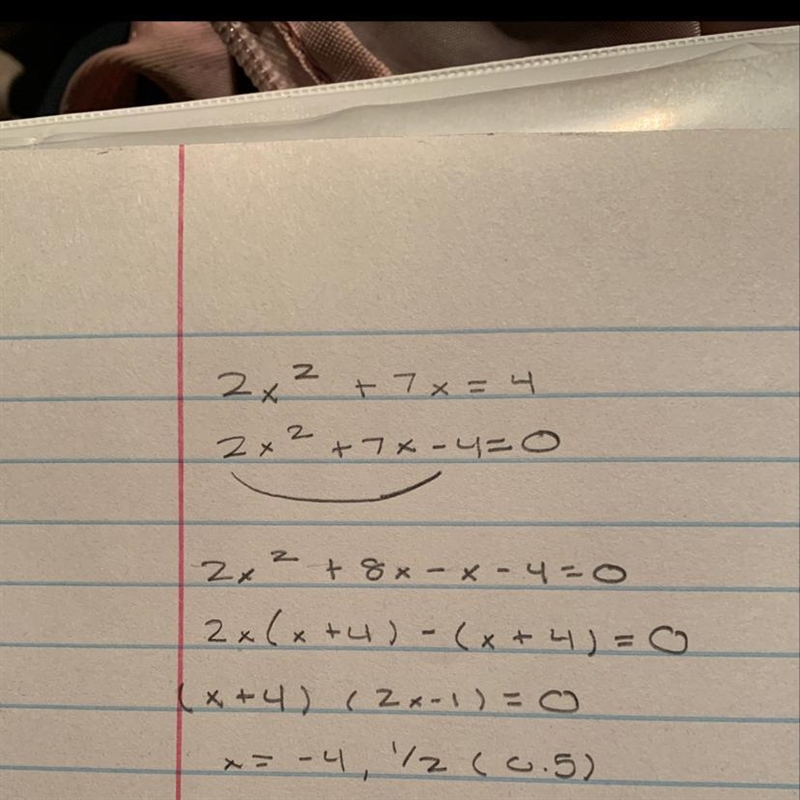 2x² + 7x = 4
2x² + 7x - 4 = 0
2x² + 8x - x - 4 = 0
2x(x + 4) - (x + 4) = 0
(x + 4) (2x - 1) = 0
x = -4, 1/2 (0.5)